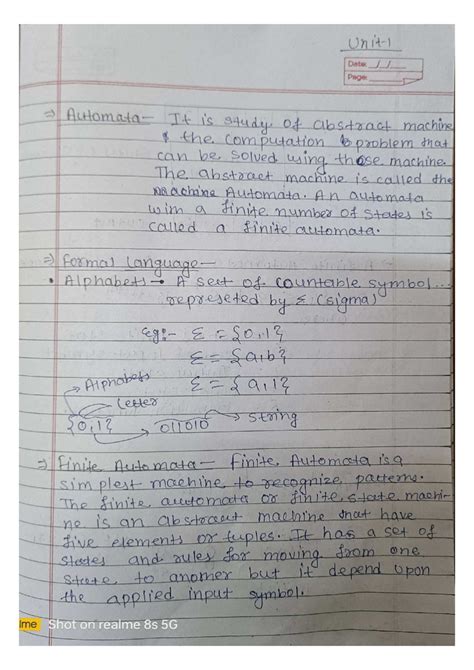 Unit-1
Date: / /
Page:
⇒ Automata - It is study of abstract machine
& the computation problem that
can be solved using those machine.
The abstract machine is called the
Automata. An automata
with a finite number of states is
called a finite automata.
⇒ Formal Language -
• Alphabets → A set of countable symbol...
represeted by Σ (sigma)
Eg:- Σ = {0,1}
Σ = {a,b}
→ Alphabets Σ = {a,1}
Letter
{0,1} 011010 → String
⇒ Finite Automata - finite, Automata is a
simplest machine to recognize patterns.
The finite automata or finite state machi-
ne is an abstract machine that have
five elements or tuples. It has a set of
states and rules for moving from one
state to another but it depend upon
the applied input symbol.
lme Shot on realme 8s 5G